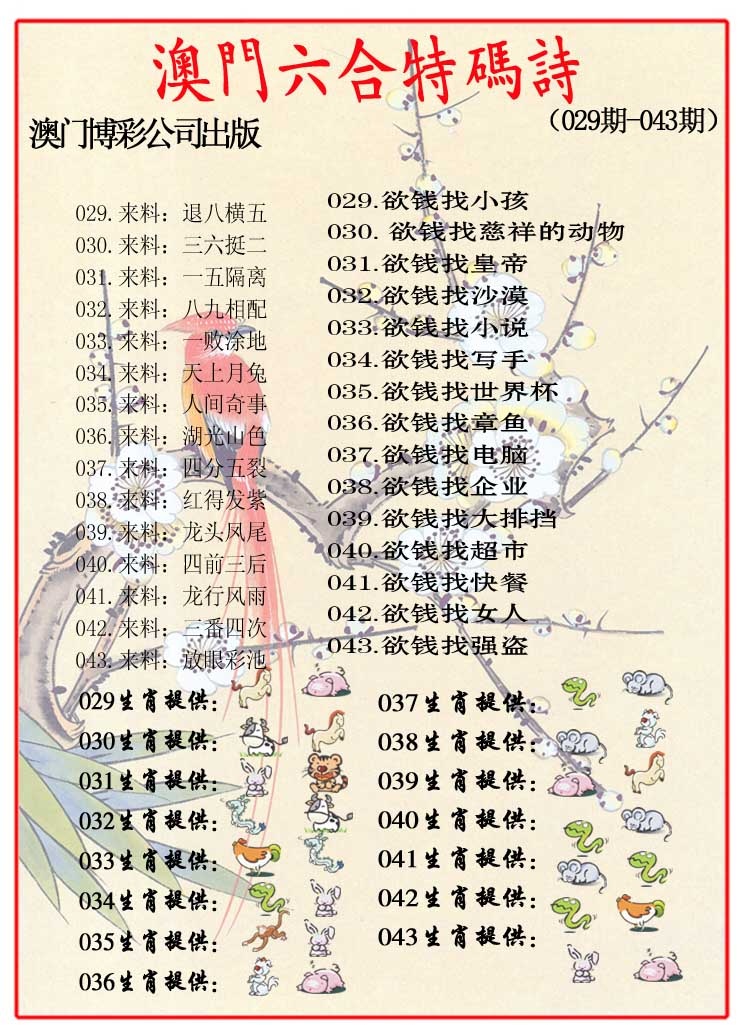 澳門六合特碼詩
澳门博彩公司出版
（029期-043期）
029.来料：退八横五
030.来料：三六挺二
031.来料：一五隔离
032.来料：八九相配
033.来料：一败涂地
034.来料：天上月兔
035.来料：人间奇事
036.来料：湖光山色
037.来料：四分五裂
038.来料：红得发紫
039.来料：龙头风尾
040.来料：四前三后
041.来料：龙行风雨
042.来料：三番四次
043.来料：放眼彩池
029.欲钱找小孩
030. 欲钱找慈祥的动物
031.欲钱找皇帝
032.欲钱找沙漠
033.欲钱找小说
034.欲钱找写手
035.欲钱找世界杯
036.欲钱找章鱼
037.欲钱找电脑
038.欲钱找企业
039.欲钱找大排挡
040.欲钱找超市
041.欲钱找快餐
042.欲钱找女人
043.欲钱找强盗
029生肖提供：
030生肖提供：
031生肖提供：
032生肖提供：
033生肖提供：
034生肖提供：
035生肖提供：
036生肖提供：
037生肖提供：
038生肖提供：
039生肖提供：
040生肖提供：
041生肖提供：
042生肖提供：
043生肖提供：